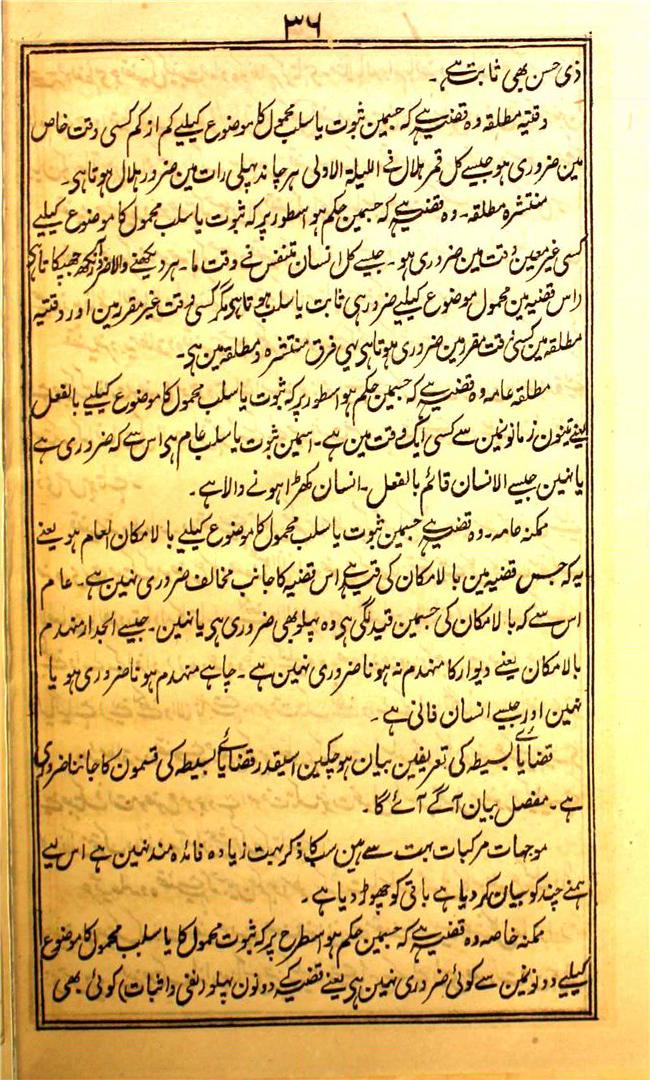 ۳۶
ذی حس بھی ثابت ہے۔
وقتیہ مطلقہ وہ قضیہ ہے کہ جسمین ثبوت یا سلب محمول کا موضوع کیلیے کم از کم کسی وقت خاص
مین ضروری ہو جیسے کل قمر ہلال فے اللیلۃ الاولی ہر چاند پہلی رات مین ضرور ہلال ہوتا ہی۔
منتشرہ مطلقہ۔ وہ قضیہ ہے کہ جسمین حکم ہو اسطور پر کہ ثبوت یا سلب محمول کا موضوع کیلیے
کسی غیر معین وقت مین ضروری ہو۔ جیسے کل انسان متنفس فے وقت ما۔ ہر دیکھنے والا ضرور آنکھ جھپکاتا ہی
(اس قضیہ مین محمول موضوع کیلیے ضروری ثابت یا سلب ہوتا ہی مگر کسی وقت غیر مقرر مین اور وقتیہ
مطلقہ مین کسی وقت مقرر مین ضروری ہوتا ہی یہی فرق منتشرہ و مطلقہ مین ہی۔
مطلقہ عامہ وہ قضیہ ہے کہ جسمین حکم ہو اسطور پر کہ ثبوت یا سلب محمول کا موضوع کیلیے بالفعل
یعنے تینون زمانونمین سے کسی ایک وقت مین ہے۔ اسمین ثبوت یا سلب عام ہی اس سے کہ ضروری ہے
یا نہین جیسے الانسان قائم بالفعل۔ انسان کھڑا ہونے والا ہے۔
ممکنہ عامہ۔ وہ قضیہ ہے جسمین ثبوت یا سلب محمول کا موضوع کیلیے بالامکان العام ہو یعنے
یہ کہ جس قضیہ مین بالامکان کی قید ہے اس قضیہ کا جانب مخالف ضروری نہین ہے۔ عام
اس سے کہ بالامکان کی جسمین قید لگی ہی وہ پہلو بھی ضروری ہی یا نہین۔ جیسے الجدار منہدم
بالامکان یعنے دیوار کا منہدم نہ ہونا ضروری نہین ہے۔ چاہے منہدم ہونا ضروری ہو یا
نہین اور جیسے انسان فانی ہے۔
قضایاے بسیطہ کی تعریفین بیان ہو چکین اسیقدر قضایاے بسیطہ کی قسمون کا جاننا ضروری
ہے۔ مفصل بیان آگے آئے گا۔
موجہات مرکبات بہت سے ہین سب کا ذکر بہت زیادہ فائدہ مند نہین ہے اس لیے
ہمنے چند کو بیان کر دیا ہے باقی کو چھوڑ دیا ہے۔
ممکنہ خاصہ وہ قضیہ ہے کہ جسمین حکم ہو اسطرح پر کہ ثبوت محمول کا یا سلب محمول کا موضوع
کیلیے دونونمین سے کوئی ضروری نہین ہی یعنے قضیہ کے دونون پہلو (نفی و اثبات) کوئی بھی